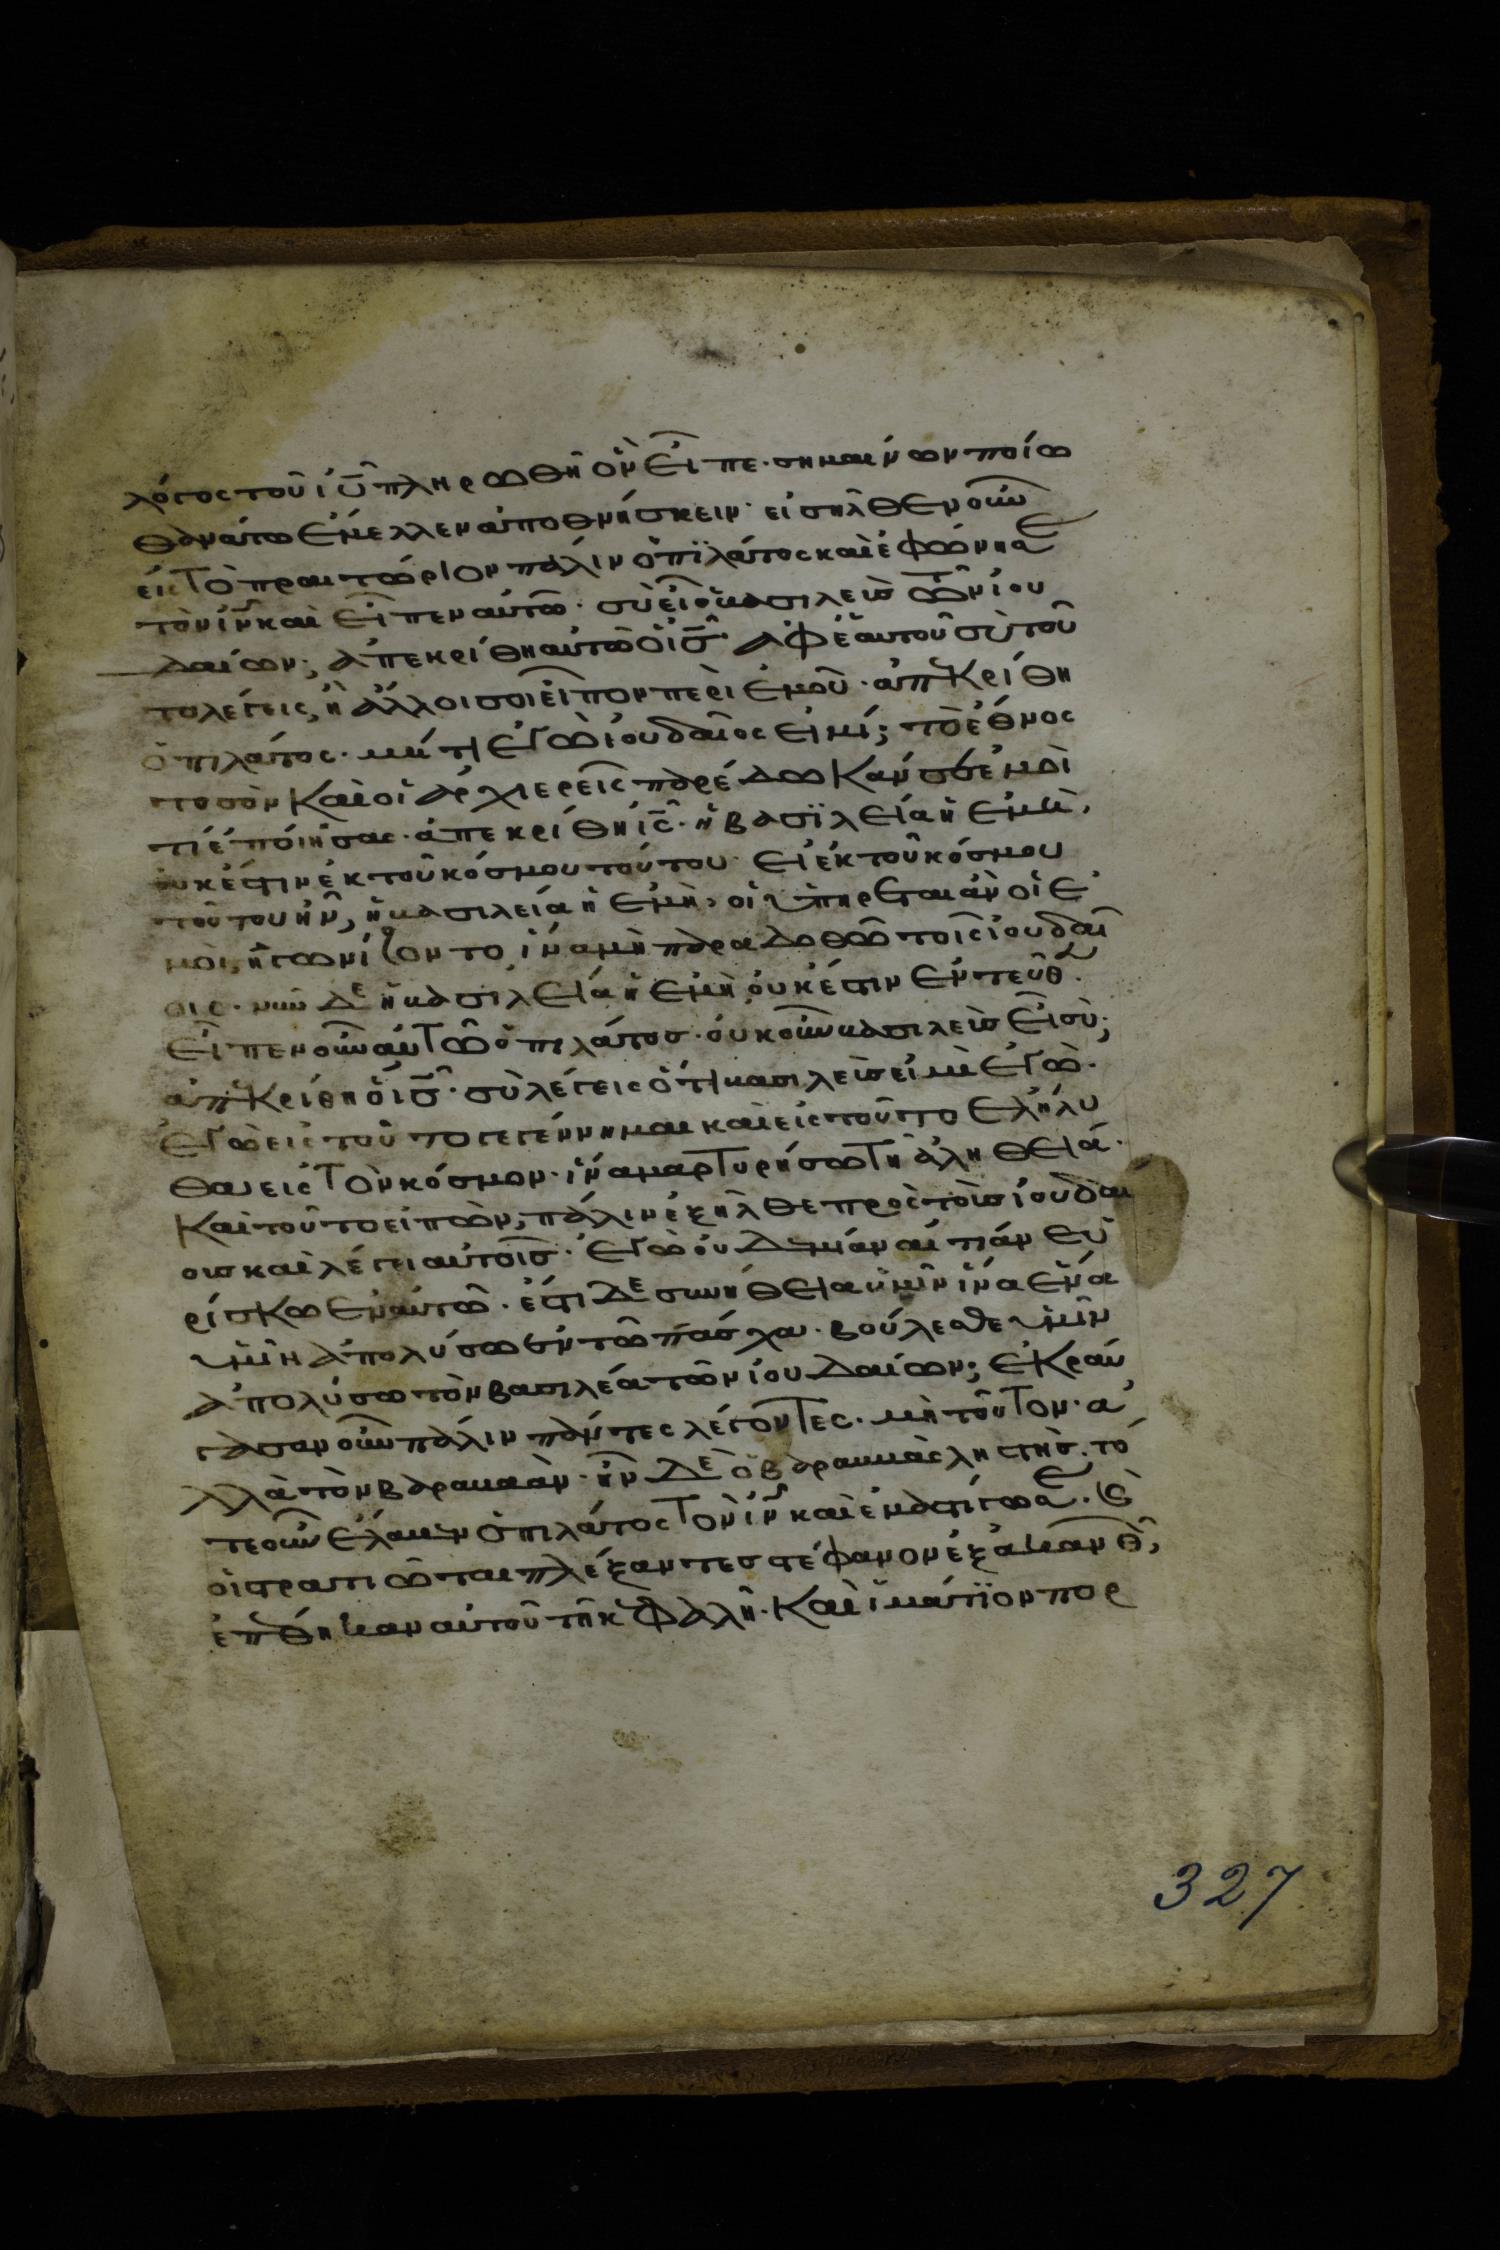 λόγος τοῦ ἰῦ πληρωθῆ ὃν εἶπε· σημαίνων ποίω
θανάτω ἔμελλεν ἀποθνήσκειν· εἰσῆλθεν οὖν
εἰς τὸ πραιτώριον πάλιν ὁ πϊλάτος καὶ ἐφώνησε
τὸν ἰν καὶ εἶπεν αὐτῶ· σὺ εἶ ὁ βασιλεὺς τῶν ἰου
δαίων; ἀπεκρίθη αὐτῶ ὁ ἰς· ἀφ' ἑαυτοῦ σὺ τοῦ
το λέγεις, ἢ ἄλλοι σοι εἶπον περὶ ἐμοῦ· ἀπεκρίθη
ὁ πιλάτος· μήτι ἐγὼ ἰουδαῖος εἰμί; τὸ ἔθνος
το σὸν καὶ οἱ ἀρχιερεῖς παρέδωκάν σε ἐμοὶ
τί ἐποίησας· ἀπεκρίθη ἰς· ἡ βασϊλεία ἡ ἐμὴ,
οὐκ ἔστιν ἐκ τοῦ κόσμου τούτου· εἰ ἐκ τοῦ κόσμου
τούτου ἦν, ἡ βασιλεία ἡ ἐμὴ, οἱ ὑπηρέται ἂν οἱ ἐ
μοὶ, ἠγωνίζοντο, ἵνα μὴ παραδοθῶ τοῖς ἰουδαί
οις· νῦν δὲ ἡ βασιλεία ἡ ἐμὴ, οὐκ ἔστιν ἐντεῦθεν·
εἶπεν οὖν αὐτῶ ὁ πιλάτος· οὐκοῦν βασιλεὺς εἶ σὺ;
ἀπεκρίθη ὁ ἰς· σὺ λέγεις ὅτι βασιλεὺς εἰμὶ ἐγὼ·
ἐγὼ εἰς τοῦτο γεγέννημαι καὶ εἰς τοῦτο ἐλήλυ
θα εἰς τὸν κόσμον· ἵνα μαρτυρήσω τῆ ἀληθεία·
καὶ τοῦτο εἰπὼν, πάλιν ἐξῆλθε πρὸς τοὺς ἰουδαί
ους καὶ λέγει αὐτοῖς· ἐγὼ οὐδεμίαν αἰτίαν εὑ
ρίσκω ἐν αὐτῶ· ἔστι δὲ συνήθεια ὑμῖν ἵνα ἕνα
ὑμῖν ἀπολύσω ἐν τῶ πάσχα· βούλεσθε ὑμῖν
ἀπολύσω τὸν βασιλέα τῶν ἰουδαίων; ἐκραύ
γασαν οὖν πάλιν πάντες λέγοντες· μὴ τοῦτον· ἀ
λλὰ τὸν βαραββᾶν· ἦν δὲ ὁ βαραββᾶς ληστής· τό
τε οὖν ἔλαβεν ὁ πιλάτος τὸν ἰν καὶ ἐμαστίγωσε· καὶ
οἱ στρατιῶται πλέξαντες στέφανον ἐξ ἀκανθῶν,
ἐπέθηκαν αὐτοῦ τῆ κεφαλῆ· καὶ ἱμάτϊον πορ
327